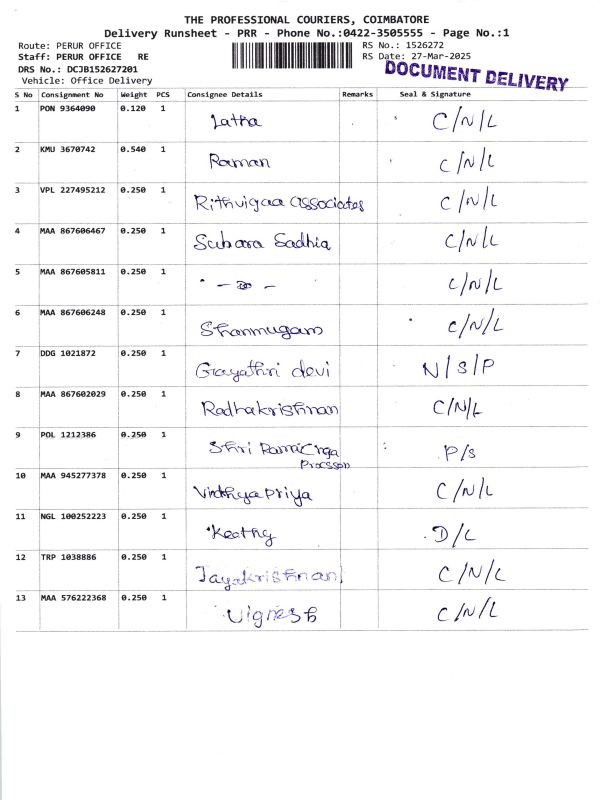 THE PROFESSIONAL COURIERS, COIMBATORE
Delivery Runsheet - PRR - Phone No.:0422-3505555 - Page No.:1
Route: PERUR OFFICE RS No.: 1526272
Staff: PERUR OFFICE RE RS Date: 27-Mar-2025
DRS No.: DCJB152627201 DOCUMENT DELIVERY
Vehicle: Office Delivery
S No Consignment No Weight PCS Consignee Details Remarks Seal & Signature
1 PON 9364090 0.120 1 Latha C/N/L
2 KMU 3670742 0.540 1 Raman C/N/L
3 VPL 227495212 0.250 1 Rithvigaa associates C/N/L
4 MAA 867606467 0.250 1 Subara Sadhia C/N/L
5 MAA 867605811 0.250 1 " - Do - C/N/L
6 MAA 867606248 0.250 1 Shanmugam C/N/L
7 DDG 1021872 0.250 1 Gayathri devi N/S/P
8 MAA 867602029 0.250 1 Radhakrishnan C/N/L
9 POL 1212386 0.250 1 Shri P/S
10 MAA 945277378 0.250 1 C/N/L
11 NGL 100252223 0.250 1 D/L
12 TRP 1038886 0.250 1 Jayakrishnan C/N/L
13 MAA 576222368 0.250 1 Vignesh C/N/L